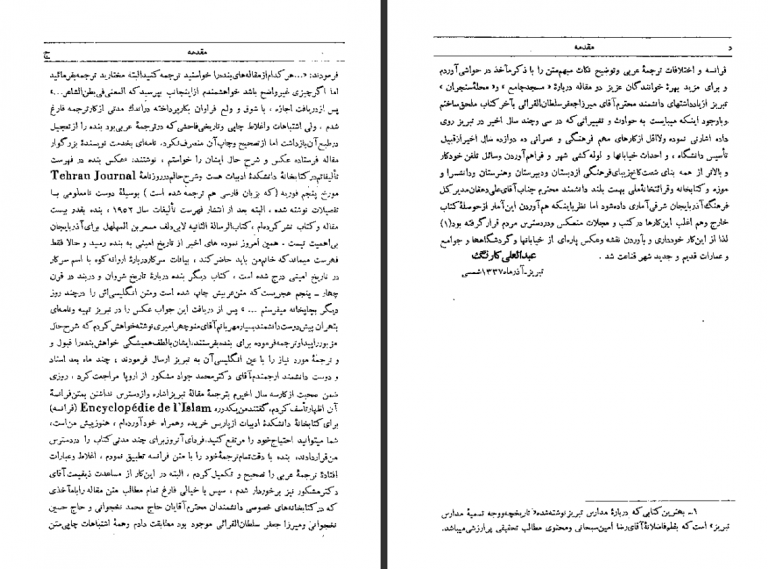 مقدمه
فرمودند: «...هر کدام از مقاله های بنده را خواستید ترجمه کنید البته مختارید ترجمه بفرمائید
اما اگر چیزی غیر واضح باشد خواهشمندم از اینجانب بپرسید که المعنی فی بطن الشاعر...»
پس از دریافت اجازه ، با شوق و ولع فراوان بکار پرداخته در اندك مدتی از کار ترجمه فارغ
شدم . ولی اشتباهات و اغلاط چاپی و تاریخی فاحشی که در ترجمهٔ عربی بود بنده را از تعجیل
در طبع آن بازداشت اما از تصحیح و چاپ آن منصرف نکرد. نامه‌ای بخدمت نویسندهٔ بزرگوار
مقاله فرستاده عکس و شرح حال ایشان را خواستم ، نوشتند: «عکس بنده در فهرست
تألیفاتم در کتابخانهٔ دانشکدهٔ ادبیات هست و شرح حالم در روزنامهٔ Tehran Journal
مورخ پنجم فوریه (که بزبان فارسی هم ترجمه شده است ) بوسیلهٔ دوست نامعلومی با
تفصیلات نوشته شده ، البته بعد از انتشار فهرست تألیفات سال ۱۹۵۲ ، بنده بقدر بیست
مقاله و کتاب نشر کرده‌ام ، وکتاب الرسالة الثانیه لابی دلف مسعر بن المهلهل برای آذربایجان
بی اهمیت نیست - همین امروز نمونه های اخیر از تاریخ امینی به بنده رسید و حالا فقط
فهرست میماند که خانم من باید حاضر کند ، بیانات سرکار دربارهٔ اروانه کوه با اسم سرکار
در تاریخ امینی درج شده است ، کتاب دیگر بنده دربارهٔ تاریخ شروان و دربند در قرن
چهار ـ پنجم هجریست که متن عربیش چاپ شده است ومتن انگلیسی‌اش را در چند روز
دیگر بچاپخانه میفرستم ... » پس از دریافت این جواب عکس را در تبریز تهیه و نامه‌ای
بتهران پیش دوست دانشمند بسیار مهربانم آقای منوچهر امیری نوشته خواهش کردم که شرح حال
مزبور را پیدا و ترجمه فرموده برای بنده بفرستند، ایشان بالطف همیشگی خواهش بنده را قبول و
و ترجمهٔ مورد نیاز را با عین انگلیسی آن به تبریز ارسال فرمودند ، چند ماه بعد استاد
و دوست دانشمند ارجمندم آقای دکتر محمد جواد مشکور از اروپا مراجعت کرد . روزی
ضمن صحبت از کارسه سال اخیرم بترجمهٔ مقالهٔ تبریز اشاره و از دسترس نداشتن بمتن فرانسهٔ
آن اظهار تأسف کردم، گفتند من یکدوره Encyclopédie de l'Islam (فرانسه)
برای کتابخانهٔ دانشکدهٔ ادبیات از پاریس خریده و همراه خود آورده‌ام ، هنوز پیش من است،
شما میتوانید احتیاج خود را مرتفع کنید. فردای آنروز برای چند مدتی کتاب را در دسترس
من قرار دادند، بنده با دقت تمام ترجمهٔ خود را با متن فرانسه تطبیق نمودم ، اغلاط و عبارات
افتادهٔ ترجمهٔ عربی را تصحیح و تکمیل کردم ، البته در این کار از مساعدت ذیقیمت آقای
دکتر مشکور نیز برخوردار شدم ، سپس با خیالی فارغ تمام مطالب متن مقاله را با مآخذی
که در کتابخانه های خصوصی دانشمندان محترم آقایان حاج محمد نخجوانی و حاج حسین
نخجوانی و میرزا جعفر سلطان القرائی موجود بود مطابقت دادم وهمهٔ اشتباهات چاپی متن
د
مقدمه
فرانسه و اختلافات ترجمهٔ عربی وتوضیح نکات مبهم متن را با ذکر مآخذ در حواشی آوردم
و برای مزید بهرهٔ خوانندگان عزیز دو مقاله دربارهٔ « مسجد جامع » و« محلهٔ سنجران »
تبریز از یادداشتهای دانشمند محترم آقای میرزا جعفر سلطان القرائی بآخر کتاب ملحق ساختم
، وباوجود اینکه میبایست به حوادث و تغییراتی که در سی وچند سال اخیر در تبریز روی
داده اشارتی نموده ولااقل از کارهای مهم فرهنگی و عمرانی ده دوازده سال اخیر از قبیل
تأسیس دانشگاه ، و احداث خیابانها و لوله کشی شهر و فراهم آوردن وسائل تلفن خودکار
و بالاتر از همه بنای شصت کاخ زیبای فرهنگی از دبستان و دبیرستان و هنرستان ودانشسرا و
موزه و کتابخانه و قرائتخانهٔ ملی بهمت بلند دانشمند محترم جناب آقای علی دهقان مدیر کل
فرهنگ آذربایجان شرقی آماری داده شود اما نظر باینکه هم آوردن این آمار از حوصلهٔ کتاب
خارج وهم اغلب این کارها در کتب و مجلات منعکس ودر دسترس مردم قرار گرفته بود(۱)
لذا از این کار خودداری و باوردن نقشه وعکس پاره‌ای از خیابانها و گردشگاهها و جوامع
و عمارات قدیم و جدید شهر قناعت شد .
عبدالعلی کارنگ
تبریز ـ آذر ماه ۱۳۳۷ شمسی
۱ ـ بهترین کتابی که دربارهٔ مدارس تبریز نوشته شده « تاریخچه و وجه تسمیهٔ مدارس
تبریز » است که بقلم فاضلانهٔ آقای رضا امین سبحانی ومحتوی مطالب تحقیقی پر ارزشی میباشد.